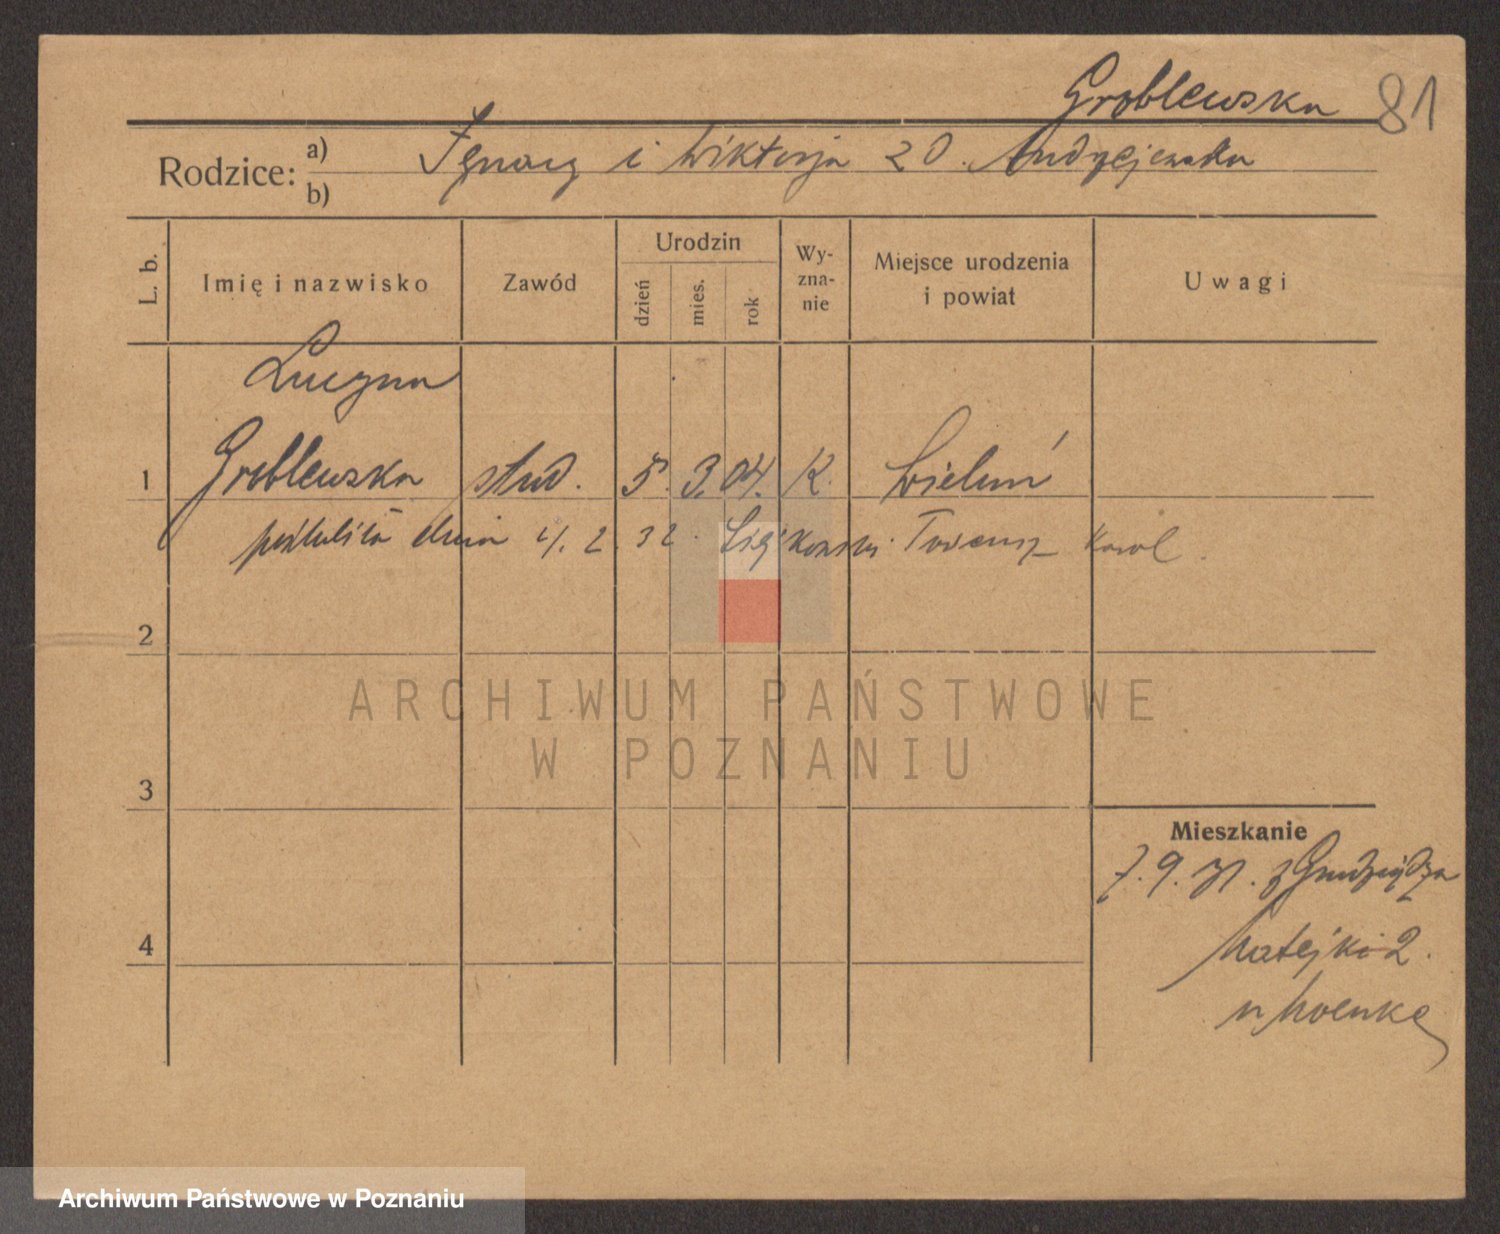 Groblewska 81
Rodzice: a) Ignacy i Wiktorja z d. Andrzejewska
b)
L. b. Imię i nazwisko Zawód Urodzin dzień mies. rok Wy-zna-nie Miejsce urodzenia i powiat Uwagi
Lucyna
1 Groblewska stud. 5. 3. 04. K. Wieluń
poślubiła dnia 4. 2. 32. Karol
2
ARCHIWUM PAŃSTWOWE
W POZNANIU
3
Mieszkanie
7. 9. 31. z Grudziądza
4 Matejki 2.
u
Archiwum Państwowe w Poznaniu